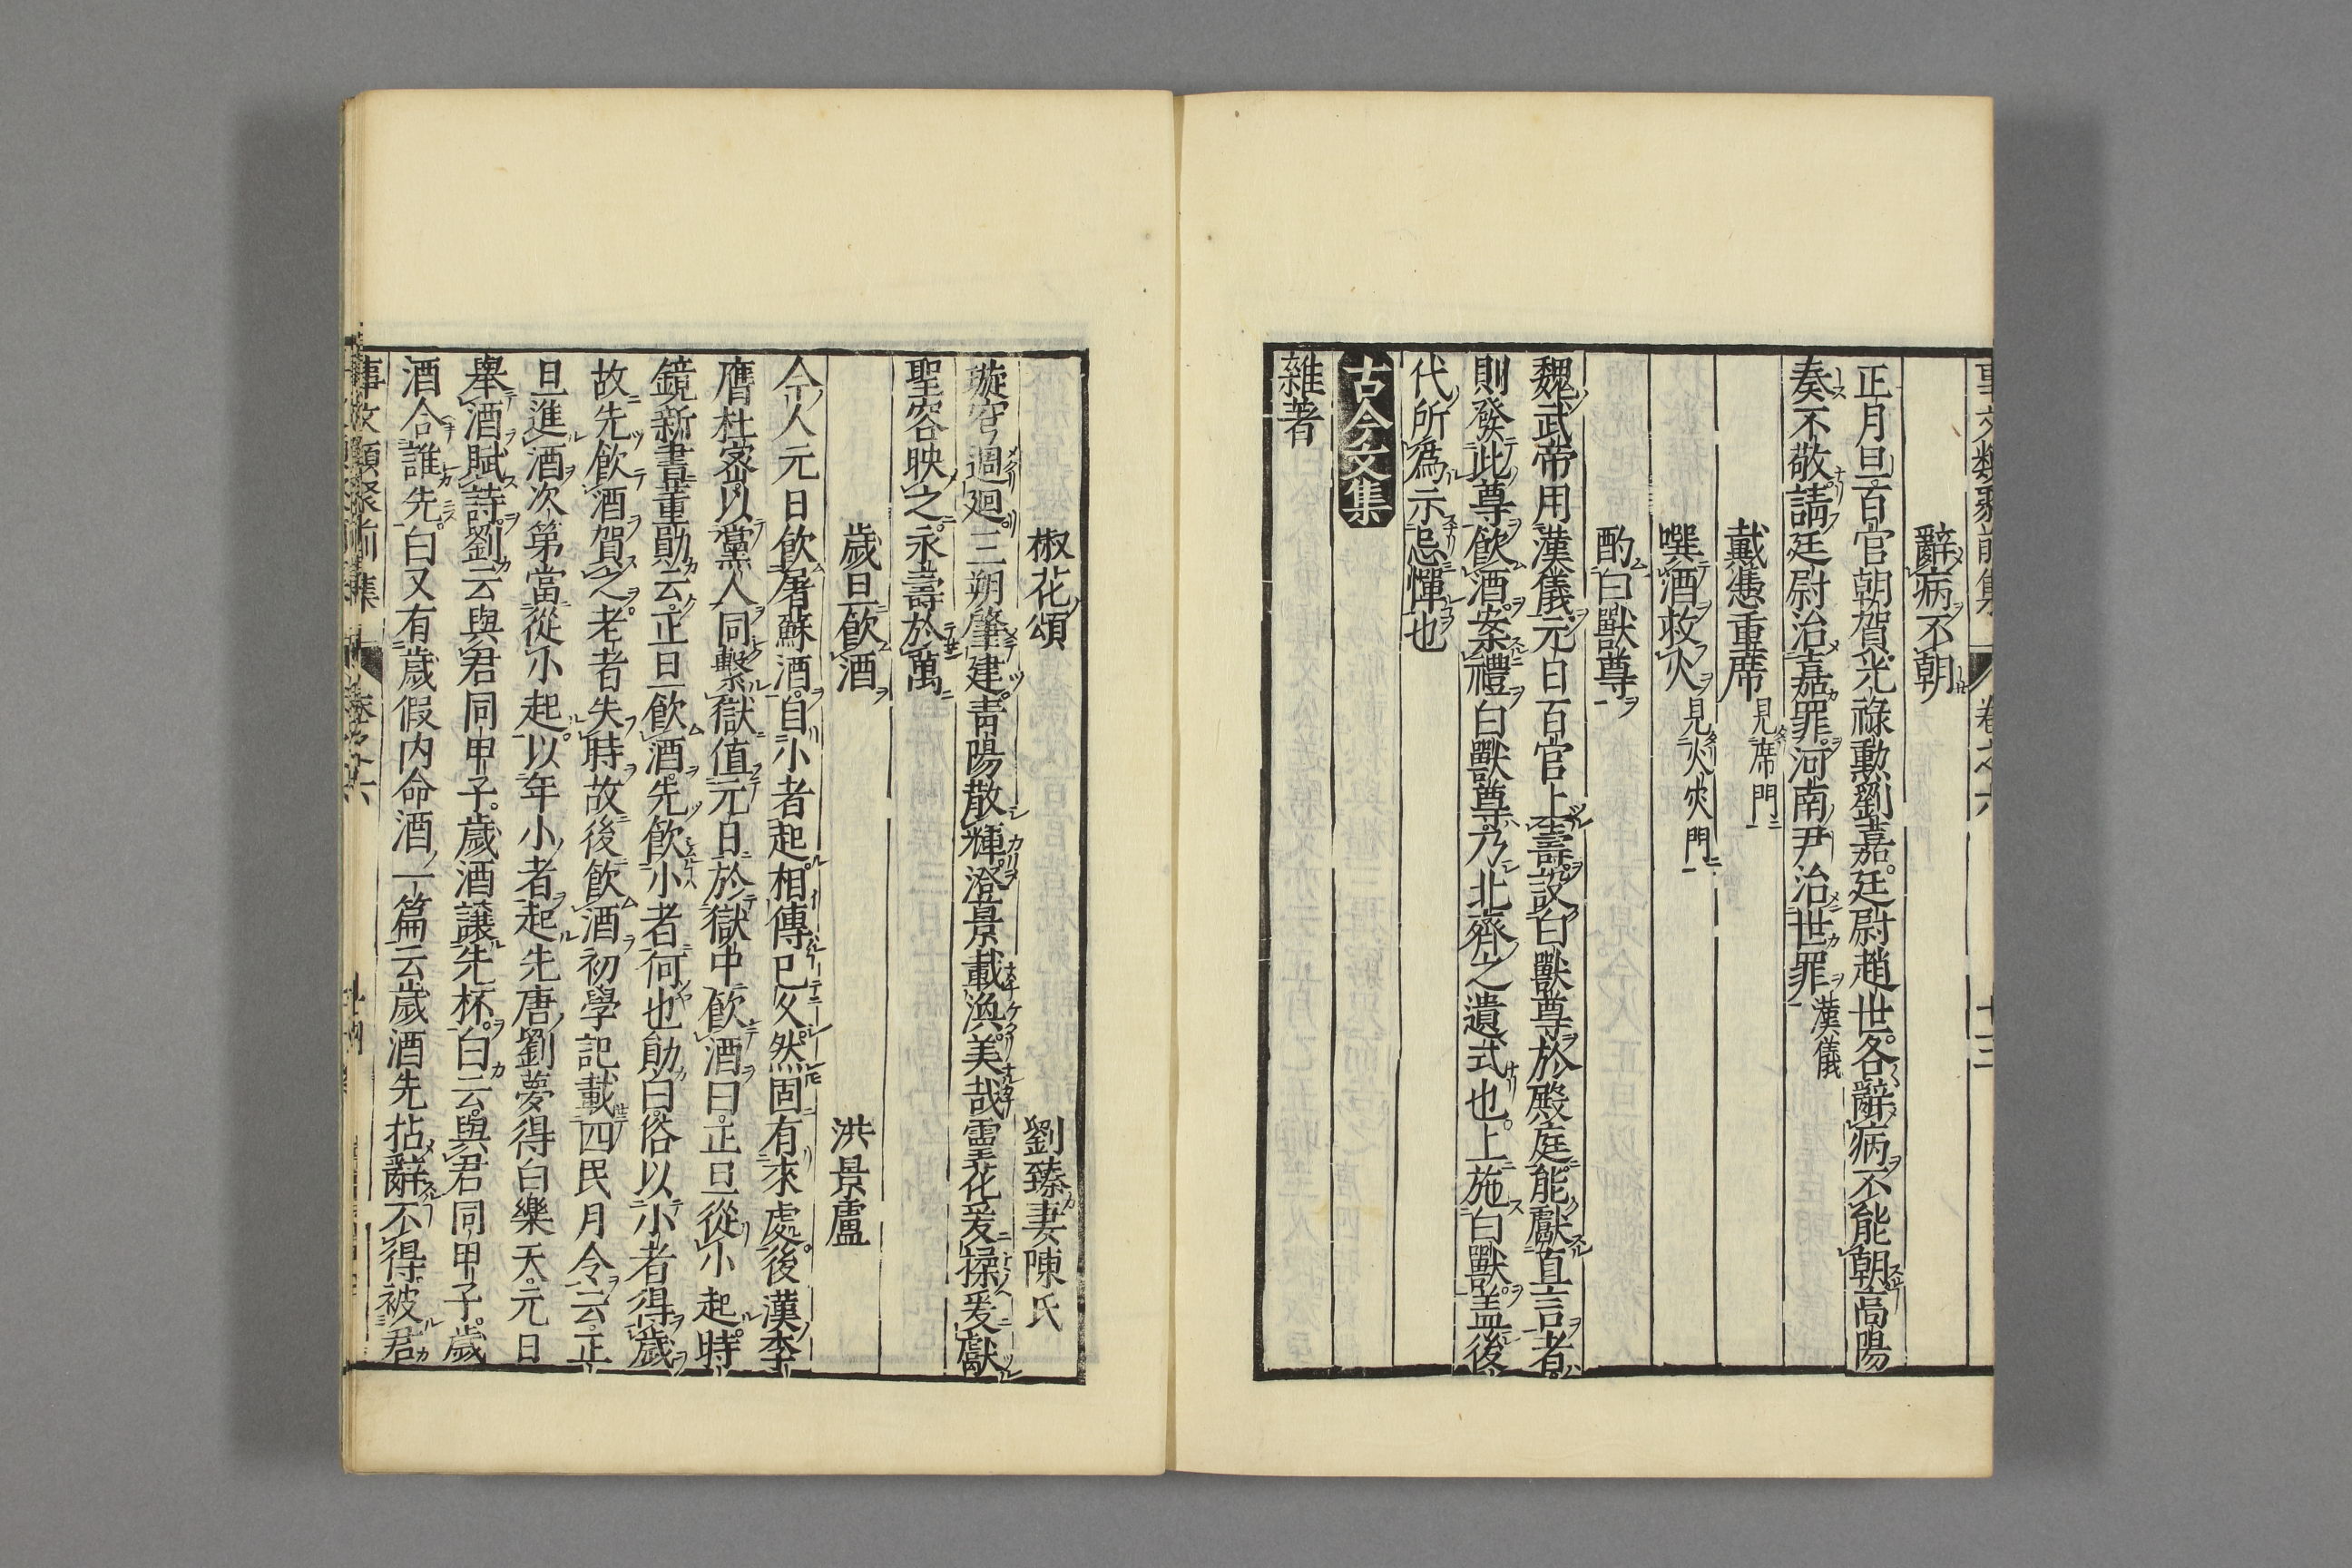 辭病不朝
正月旦百官朝賀光祿勲劉嘉廷尉趙世各辭病不能朝高陽
奏不敬請廷尉治嘉罪河南尹治世罪漢儀
戴憑重席見席門
噀酒救火見火灾門
酌白獸尊
魏武帝用漢儀元日百官上壽設白獸尊於殿庭能獻直言者
則發此尊飲酒案禮白獸尊乃北齊之遺式也上施白獸盖後
代所爲示忌憚也
古今文集
雜著
椒花頌 劉臻妻陳氏
璇穹週廻三朔肇建青陽散輝澄景載渙美哉靈花爰採爰獻
聖容映之永壽於萬
歲旦飲酒 洪景盧
今人元日飲屠蘇酒自小者起相傳已久然固有來處後漢李
膺杜密以黨人同繫獄值元日於獄中飲酒曰正旦從小起時
鏡新書董勛云正旦飲酒先飲小者何也勛曰俗以小者得歲
故先飲酒賀之老者失時故後飲酒初學記載四民月令云正
旦進酒次第當從小起以年小者起先唐劉夢得白樂天元日
舉酒賦詩劉云與君同甲子歲酒讓先杯白云與君同甲子歲
酒合誰先白又有歲假内命酒一篇云歲酒先拈辭不得被君